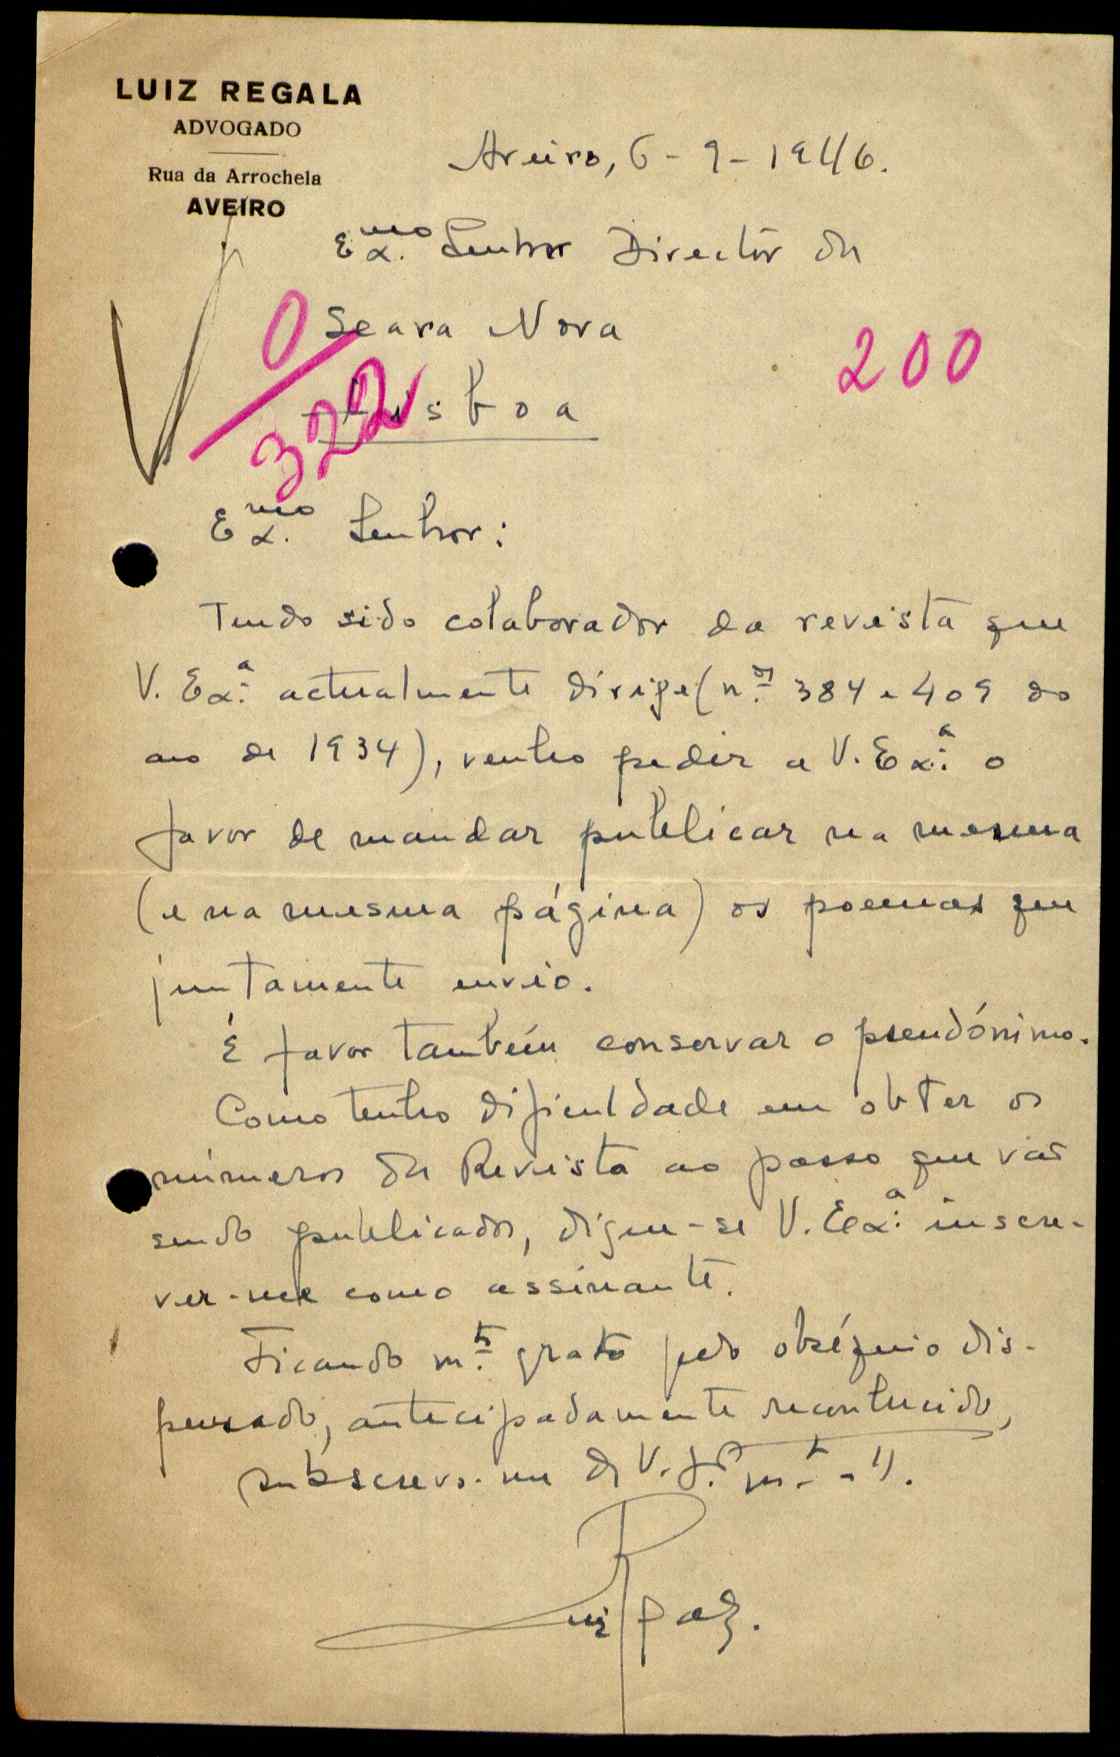 LUIZ REGALA
ADVOGADO
Rua da Arrochela
AVEIRO
Aveiro, 6-9-1946.
Ex.mo Senhor Director da
Seara Nova
Lisboa
0
322
200
Ex.mo Senhor:
Tendo sido colaborador da revista que
V. Ex.ª actualmente dirige (n.os 384 e 409 do
ano de 1934), venho pedir a V. Ex.ª o
favor de mandar publicar na mesma
(e na mesma página) os poemas que
juntamente envio.
É favor também conservar o pseudónimo.
Como tenho dificuldade em obter os
números da Revista ao passo que vão
sendo publicados, digne-se V. Ex.ª inscre-
ver-me como assinante.
Ficando m.to grato pelo obséquio dis-
pensado, antecipadamente reconhecido,
subscrevo-me de V.
Luiz